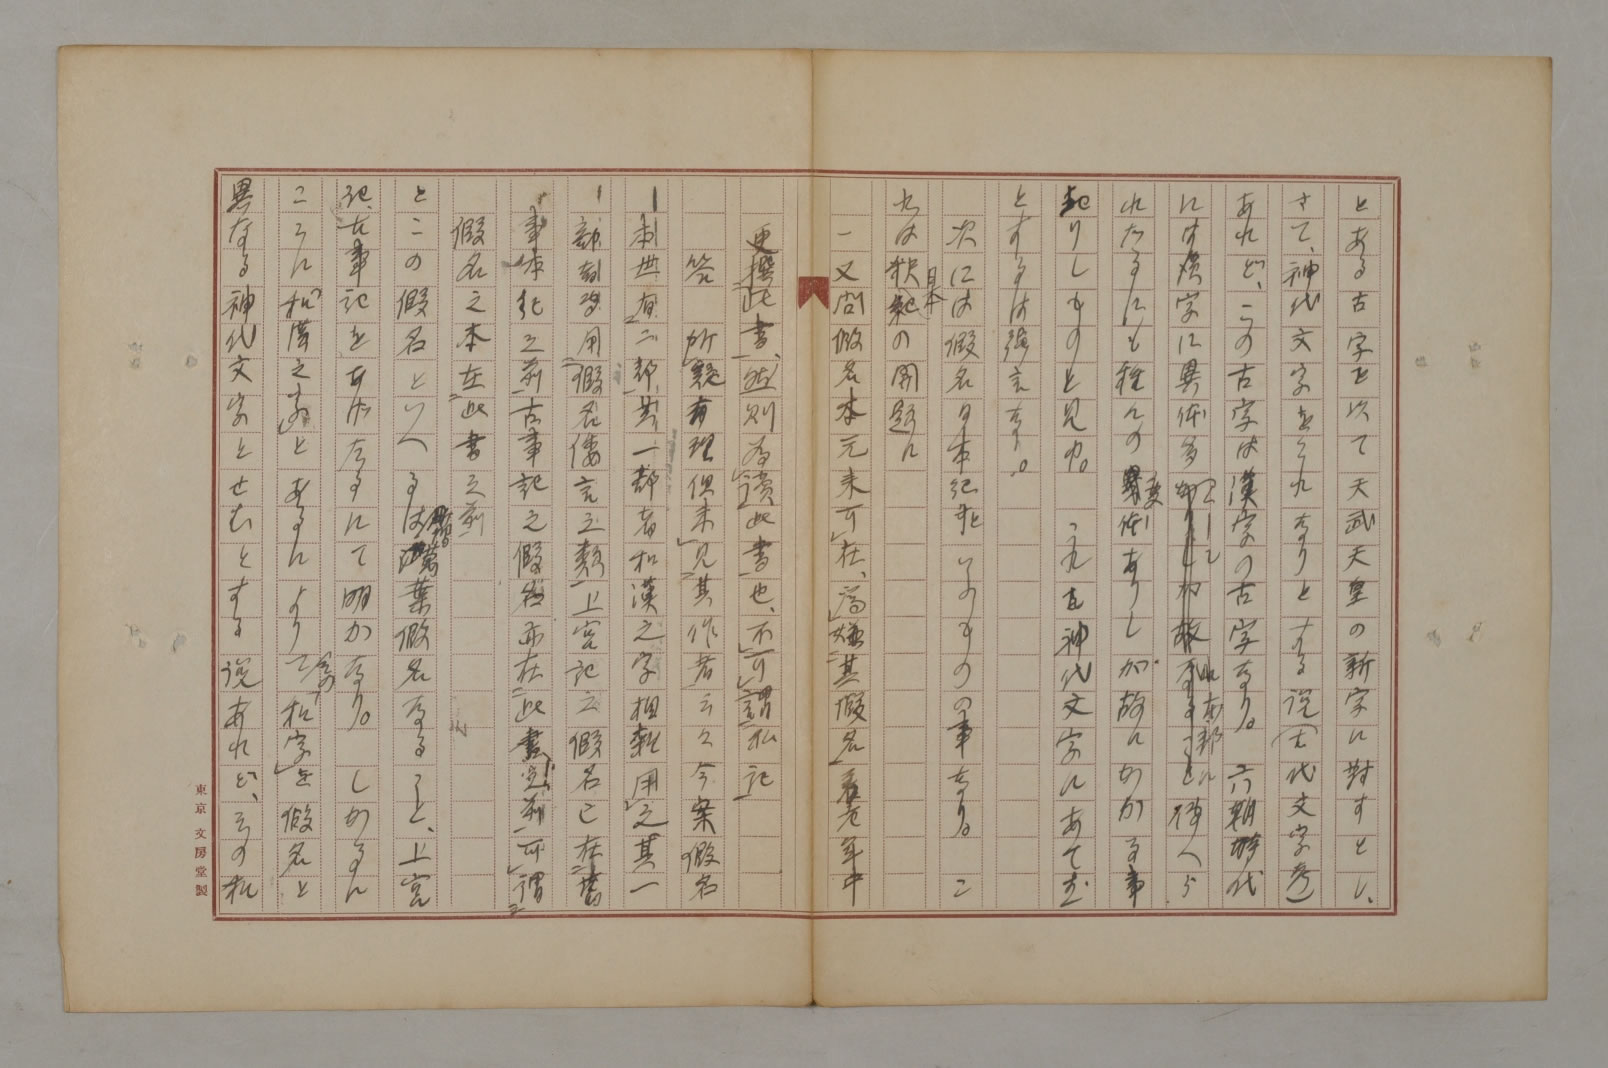 とある古字を以て天武天皇の新字に対すとし、
さて、神代文字をこれなりとする説(上代文字考)
あれど、この古字は漢字の古字なり。六朝時代
には漢字に異体多かりしかわ本邦に伝へら
れたるにも種々の変体ありしが故にかかる事
起りしものと見ゆ。これを神代文字にあてむ
とするは強言なり。
次には假名日本紀といふものの事なり。こ
れは釈日本紀の開題に
一 又問假名本元来可在、為嫌其假名養老年中
更撰此書、然則為讀此書也、不可謂私記
答 所疑有理但未見其作者云々今案假名
本世有二部其一部者和漢之字相雑用之其一
部専用假名倭言之類上宮記之假名已在舊
事本紀之前古事記之假名亦在此書之前可謂
假名之本在此書之前
とこの假名といへるは所謂萬葉假名なること、上宮
記、古事記をあげたるにて明かなり。しかるに
ここに「和漢之字」とあるによりてその「和字」を假名と
異なる神代文字とせむとする説あれど、その和
東京 文房堂製